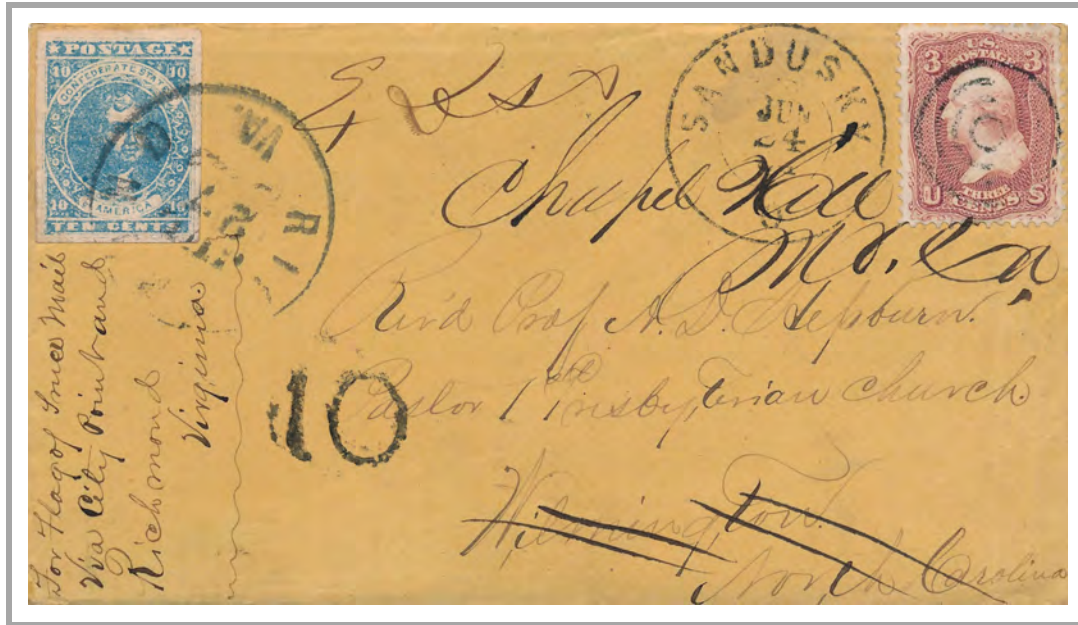 POSTAGE
10 10
CONFEDERATE STATES
OF AMERICA
10 10
TEN CENTS
RIC
VA.
SANDUSKY
JUN
24
3 U.S. 3
POSTAGE
THREE
U CENTS S
Chapel Hill
No. Ca.
Rev'd Prof A. D. Hepburn.
Pastor 1st Presbyterian Church.
Wilmington.
North Carolina
10
For Flag of Truce Mail
Via City Point and
Richmond
Virginia